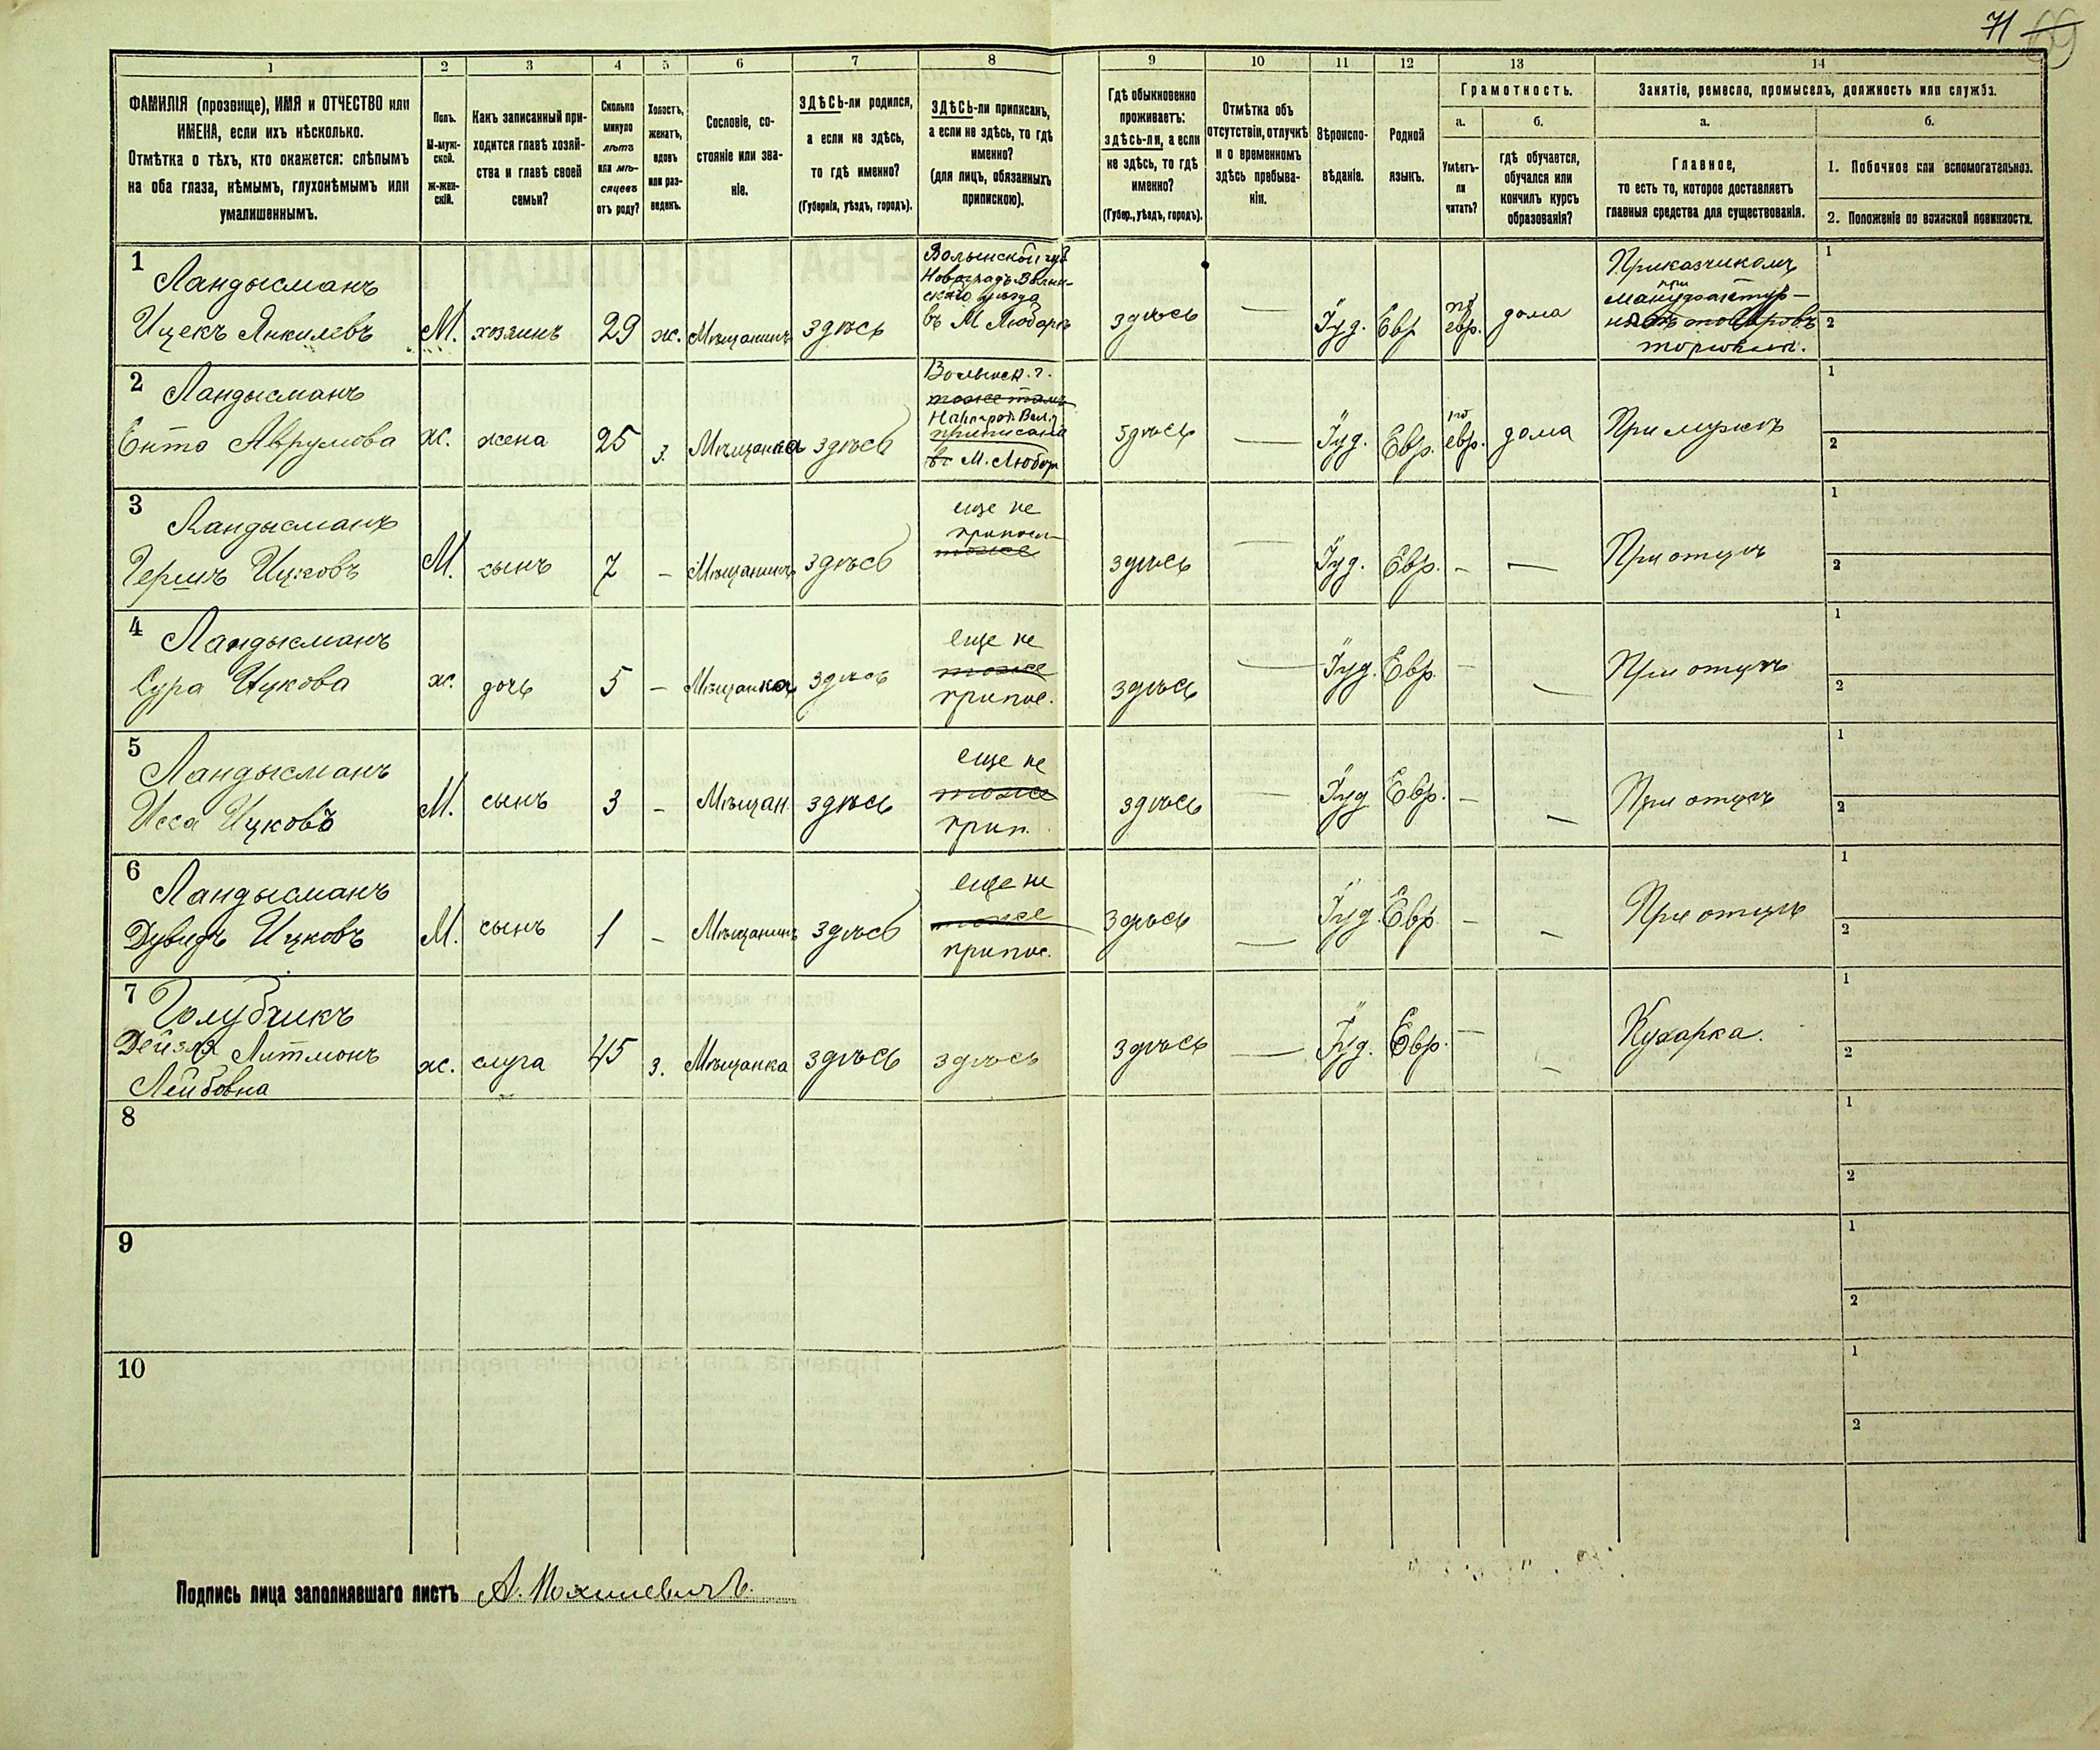 71 69
1 2 3 4 5 6 7 8 9 10 11 12 13 14
ФАМИЛІЯ (прозвище), ИМЯ и ОТЧЕСТВО или
ИМЕНА, если ихъ нѣсколько.
Отмѣтка о тѣхъ, кто окажется: слѣпымъ
на оба глаза, нѣмымъ, глухонѣмымъ или
умалишеннымъ.
Полъ.
М-муж-
ской.
ж-жен-
скій.
Какъ записанный при-
ходится главѣ хозяй-
ства и главѣ своей
семьи?
Сколько
минуло
лѣтъ
или мѣ-
сяцевъ
отъ роду?
Холостъ,
женатъ,
вдовъ
или раз-
веденъ.
Сословіе, со-
стояніе или зва-
ніе.
ЗДѢСЬ-ли родился,
а если не здѣсь,
то гдѣ именно?
(Губернія, уѣздъ, городъ).
ЗДѢСЬ-ли приписанъ,
а если не здѣсь, то гдѣ
именно?
(для лицъ, обязанныхъ
припискою).
Гдѣ обыкновенно
проживаетъ:
здѣсь-ли, а если
не здѣсь, то гдѣ
именно?
(Губер., уѣздъ, городъ).
Отмѣтка объ
отсутствіи, отлучкѣ
и о временномъ
здѣсь пребыва-
ніи.
Вѣроиспо-
вѣданіе.
Родной
языкъ.
Грамотность.
а.
Умѣетъ-
ли
читать?
б.
гдѣ обучается,
обучался или
кончилъ курсъ
образованія?
Занятіе, ремесло, промыселъ, должность или служба.
а.
Главное,
то есть то, которое доставляетъ
главныя средства для существованія.
б.
1. Побочное или вспомогательное.
2. Положеніе по воинской повинности.
1
Ландысманъ
Ицекъ Янкилевъ
М. хозяинъ 29 ж. Мѣщанинъ здѣсь
Волынской губ
Новоградъ Волын-
скаго уѣзда
въ М Любаръ
здѣсь — Іуд. Евр
по
евр. дома
Приказчикомъ
при
мануфактур-
товаровъ
торговли.
1
2
2
Ландысманъ
Ента Аврумова
ж. жена 25 з. Мѣщанка здѣсь
Волынск. г.
тоже тамъ
приписана
въ М. Любар
здѣсь — Іуд. Евр.
по
евр. дома При мужѣ
1
2
3
Ландысманъ
Гершъ Ицковъ
М. сынъ 7 — Мѣщанинъ здѣсь
еще не
приписан
тоже
здѣсь — Іуд. Евр. — — При отцѣ
1
2
4
Ландысманъ
Сура Ицкова
ж. дочь 5 — Мѣщанка здѣсь
еще не
тоже
припис.
здѣсь — Іуд. Евр. — — При отцѣ
1
2
5
Ландысманъ
Исса Ицковъ
М. сынъ 3 — Мѣщан. здѣсь
еще не
тоже
прип.
здѣсь — Іуд Евр. — — При отцѣ
1
2
6
Ландысманъ
Дувидъ Ицковъ
М. сынъ 1 — Мѣщанинъ здѣсь
еще не
тоже
припис.
здѣсь — Іуд. Евр — — При отцѣ
1
2
7
Голубчикъ
Дейзля Литмонъ
Лейбовна
ж. слуга 45 з. Мѣщанка здѣсь здѣсь здѣсь — Іуд. Евр. — — Кухарка.
1
2
8
1
2
9
1
2
10
1
2
Подпись лица заполнявшаго листъ